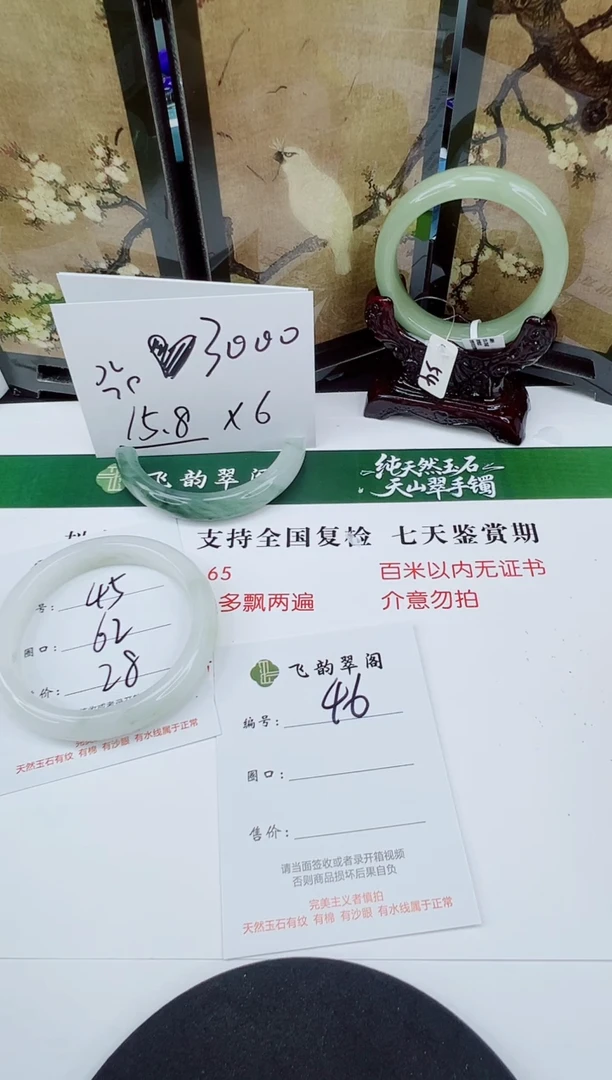 3000
15.8 x 6
54
飞韵翠阁
纯天然玉石
天山翠手镯
支持全国复检 七天鉴赏期
65
百米以内无证书
多飘两遍
介意勿拍
号: 45
圈口: 62
价: 28
天然玉石有纹 有棉 有沙眼 有水线属于正常
飞韵翠阁
编号: 46
圈口:
售价:
请当面签收或者录开箱视频
否则商品损坏后果自负
完美主义者慎拍
天然玉石有纹 有棉 有沙眼 有水线属于正常